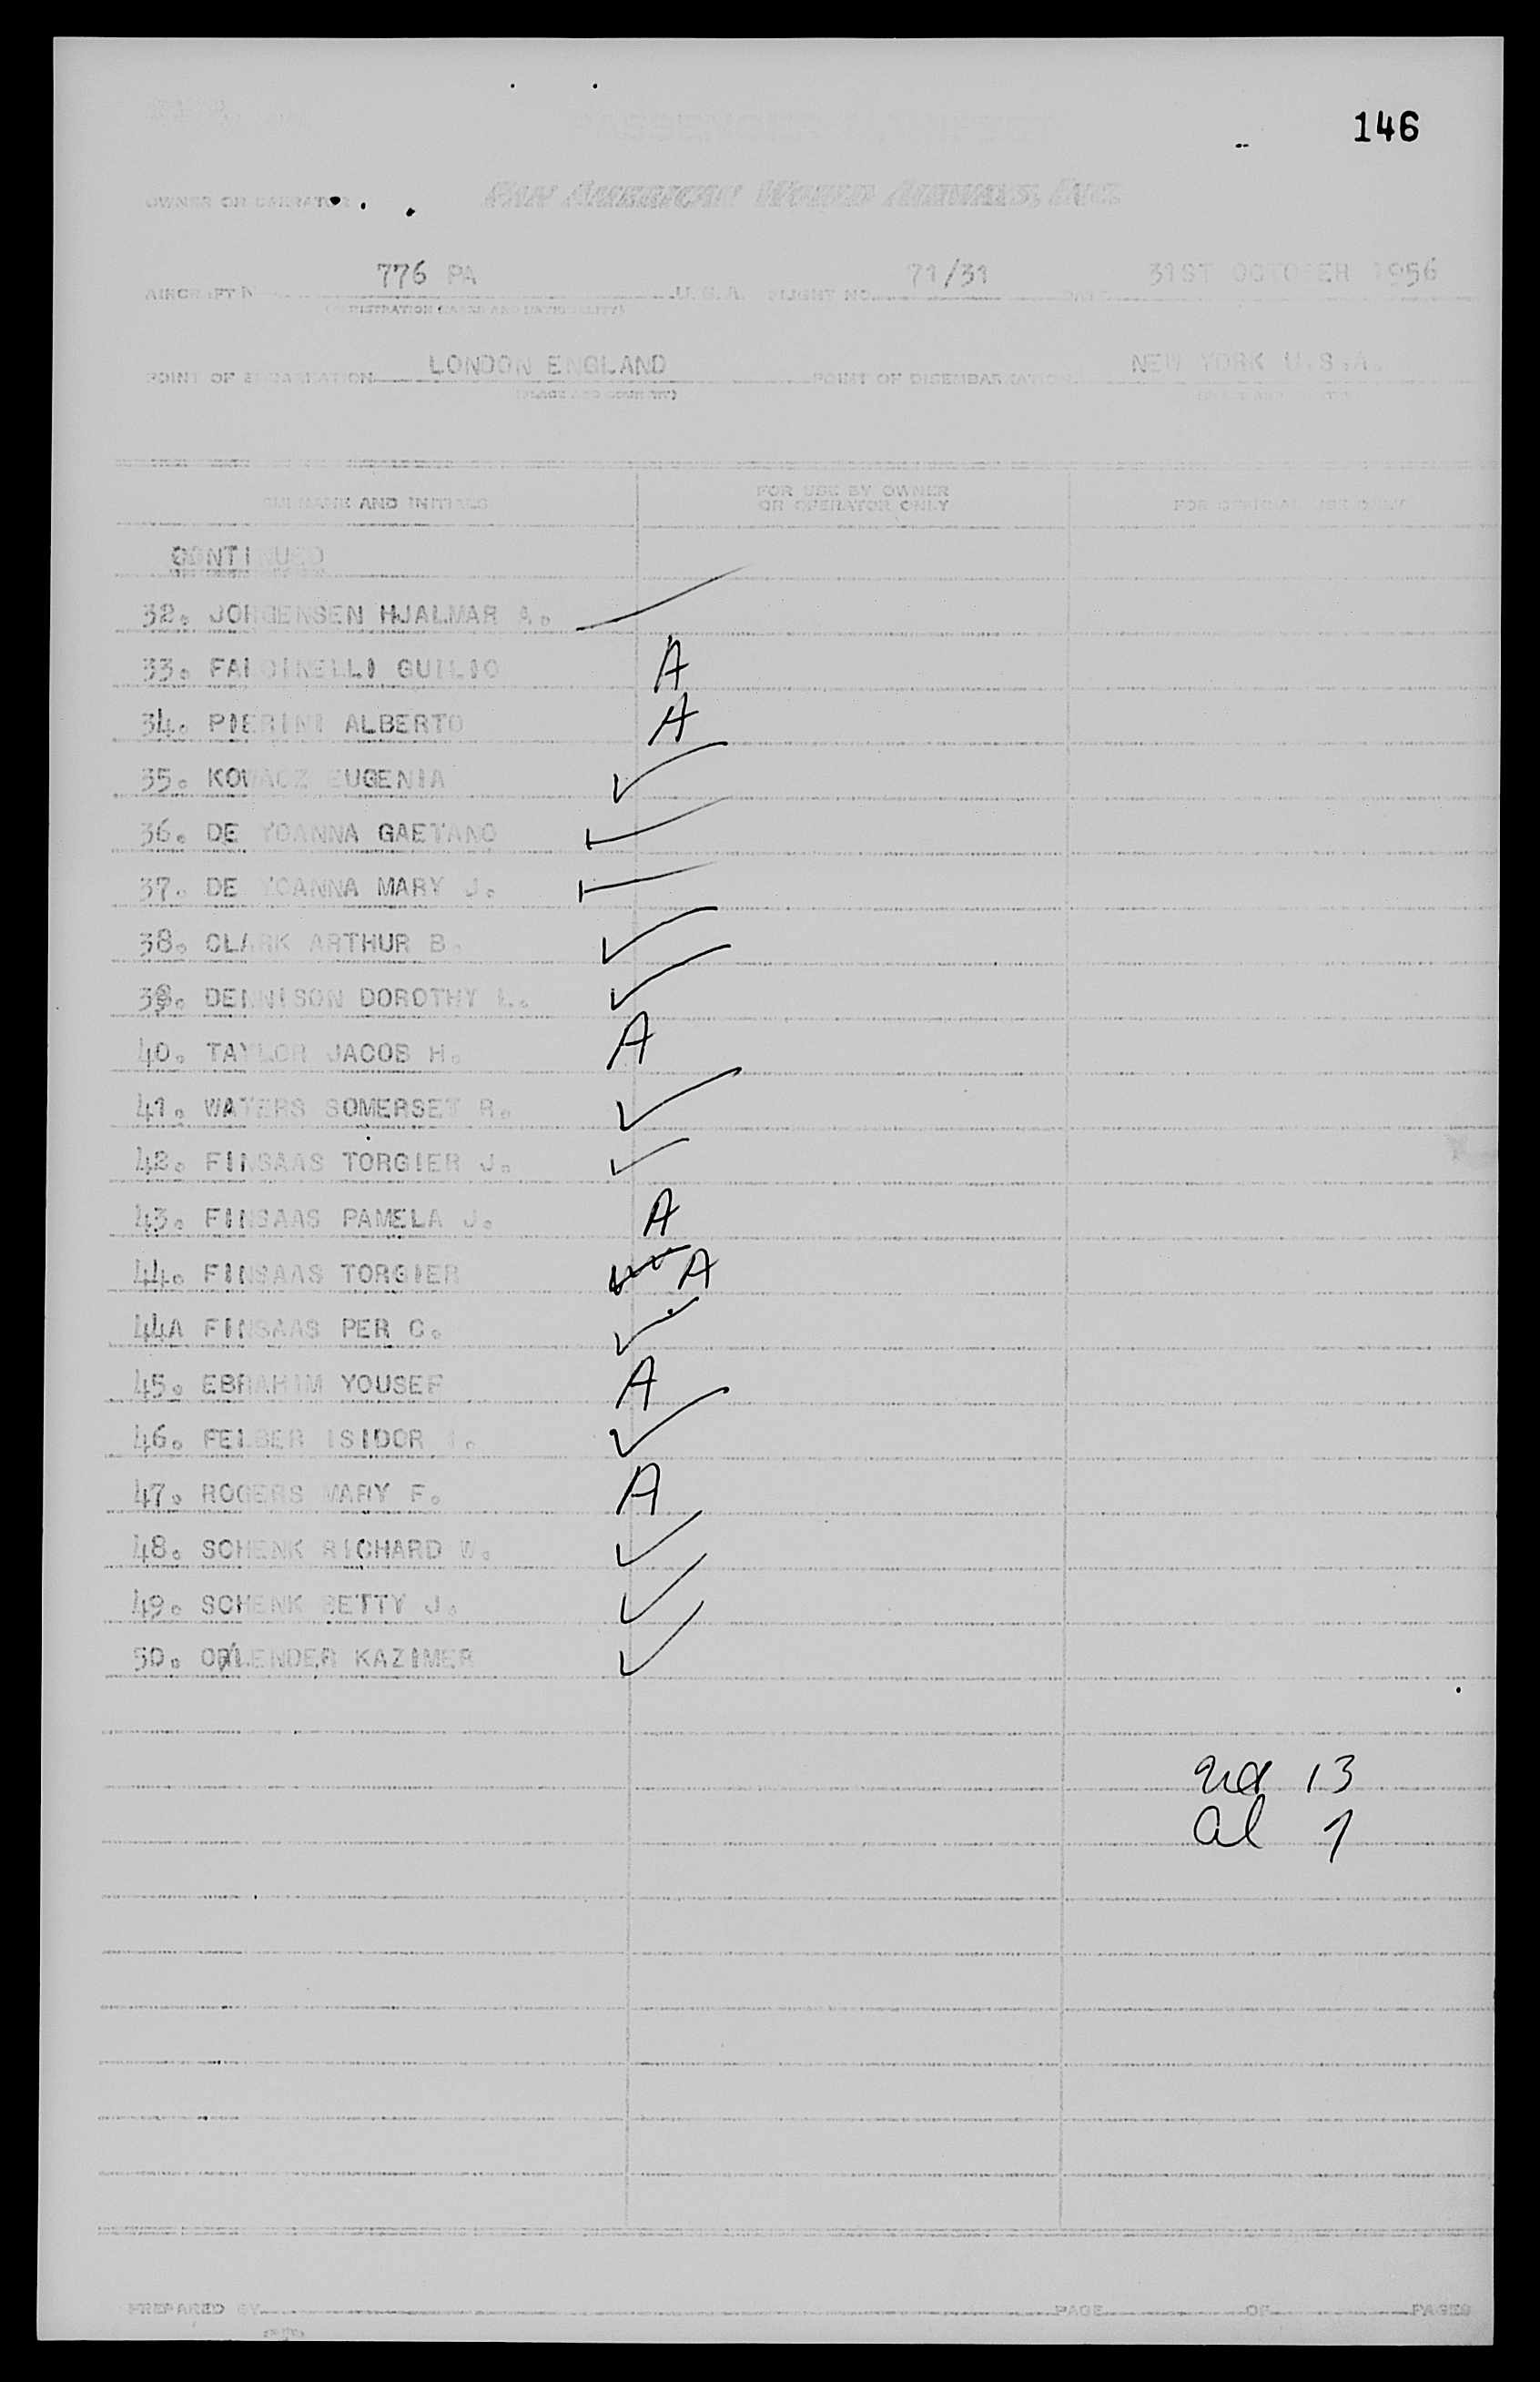 146
PASSENGER MANIFEST
OWNER OR OPERATOR PAN AMERICAN WORLD AIRWAYS, INC.
AIRCRAFT 776 PA U.S.A. FLIGHT NO. 71/31 DATE 31ST OCTOBER 1956
(REGISTRATION MARKS AND NATIONALITY)
POINT OF EMBARKATION LONDON ENGLAND POINT OF DISEMBARKATION NEW YORK U.S.A.
(PLACE AND COUNTRY) (PLACE AND COUNTRY)
SURNAME AND INITIALS FOR USE BY OWNER OR OPERATOR ONLY FOR OFFICIAL USE ONLY
CONTINUED
32. JORGENSEN HJALMAR A. ✓
33. GUILIO A
34. PIERINI ALBERTO A
35. KOVACZ EUGENIA ✓
36. DE YOANNA GAETANO ✓
37. DE YOANNA MARY J. ✓
38. CLARK ARTHUR B. ✓
39. DENNISON DOROTHY ✓
40. TAYLOR JACOB H. A
41. WATERS SOMERSET R. ✓
42. FINSAAS TORGIER J. ✓
43. FINSAAS PAMELA J. A
44. FINSAAS TORGIER A
44A FINSAAS PER C. ✓
45. EBRAHIM YOUSEF A
46. FELBER ISIDOR ✓
47. ROGERS MARY F. A
48. SCHENK RICHARD W. ✓
49. SCHENK BETTY J. ✓
50. KAZIMER ✓
13
al 1
PREPARED BY PAGE OF PAGES